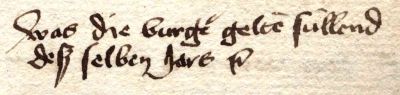 was die burgē geltē süllend
desß selben Jars